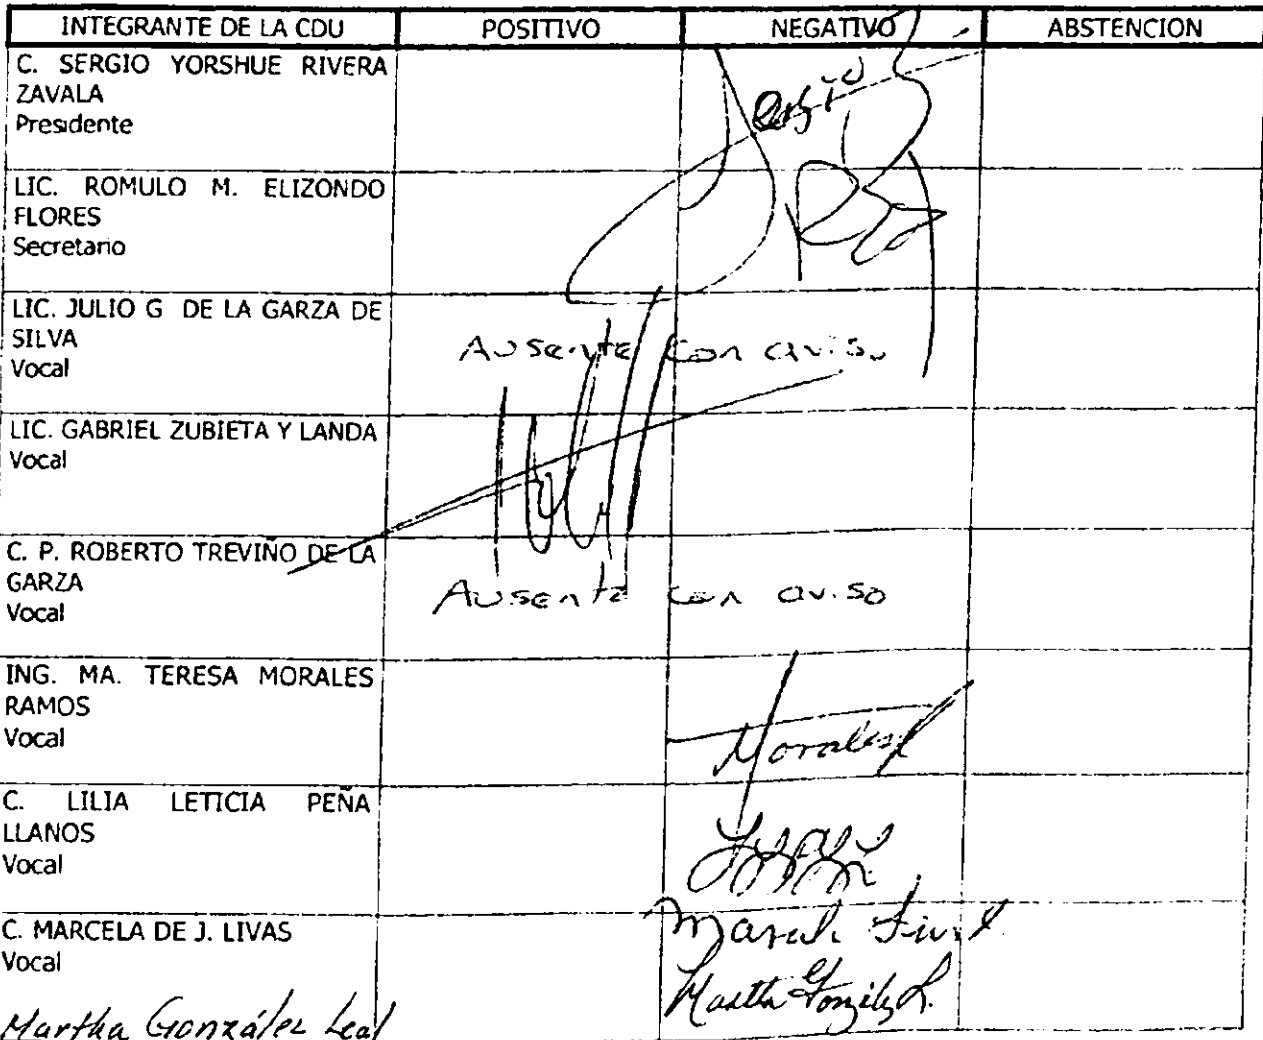 INTEGRANTE DE LA CDU POSITIVO NEGATIVO ABSTENCION
C. SERGIO YORSHUE RIVERA
ZAVALA
Presidente
LIC. ROMULO M. ELIZONDO
FLORES
Secretario
LIC. JULIO G DE LA GARZA DE
SILVA
Vocal
Ausente con aviso
LIC. GABRIEL ZUBIETA Y LANDA
Vocal
C. P. ROBERTO TREVIÑO DE LA
GARZA
Vocal
Ausente con aviso
ING. MA. TERESA MORALES
RAMOS
Vocal
Morales
C. LILIA LETICIA PEÑA
LLANOS
Vocal
C. MARCELA DE J. LIVAS
Vocal
Martha González Leal